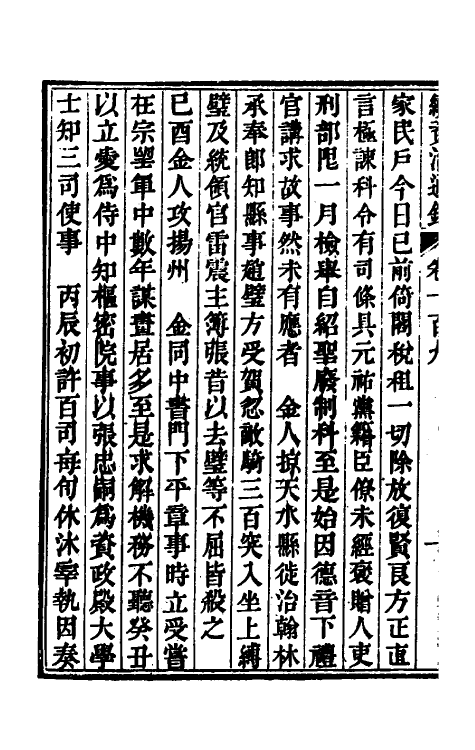 續資治通鑑 卷一百九
家民戶今日已前倚閣稅租一切除放復賢良方正直
言極諫科令有司條具元祐黨籍臣僚未經褒贈人吏
刑部限一月檢舉自紹聖廢制科至是始因德音下禮
官講求故事然未有應者 金人掠天水縣徙治翰林
承奉郎知縣事趙璧方受賀忽敵騎三百突入坐上縛
璧及統領官雷震主簿張昔以去璧等不屈皆殺之
己酉金人攻揚州 金同中書門下平章事時立愛嘗
在宗望軍中數年謀畫居多至是求解機務不聽癸丑
以立愛爲侍中知樞密院事以張忠嗣爲資政殿大學
士知三司使事 丙辰初許百司每旬休沐宰執因奏